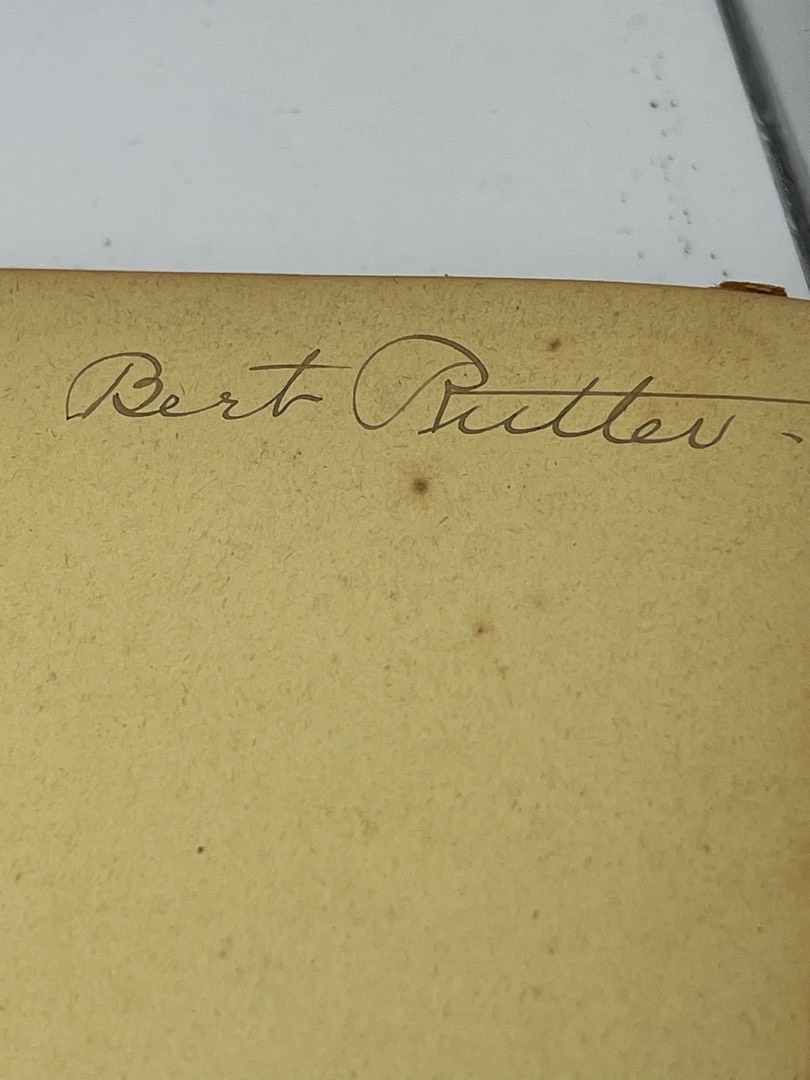 Bert Rutter -